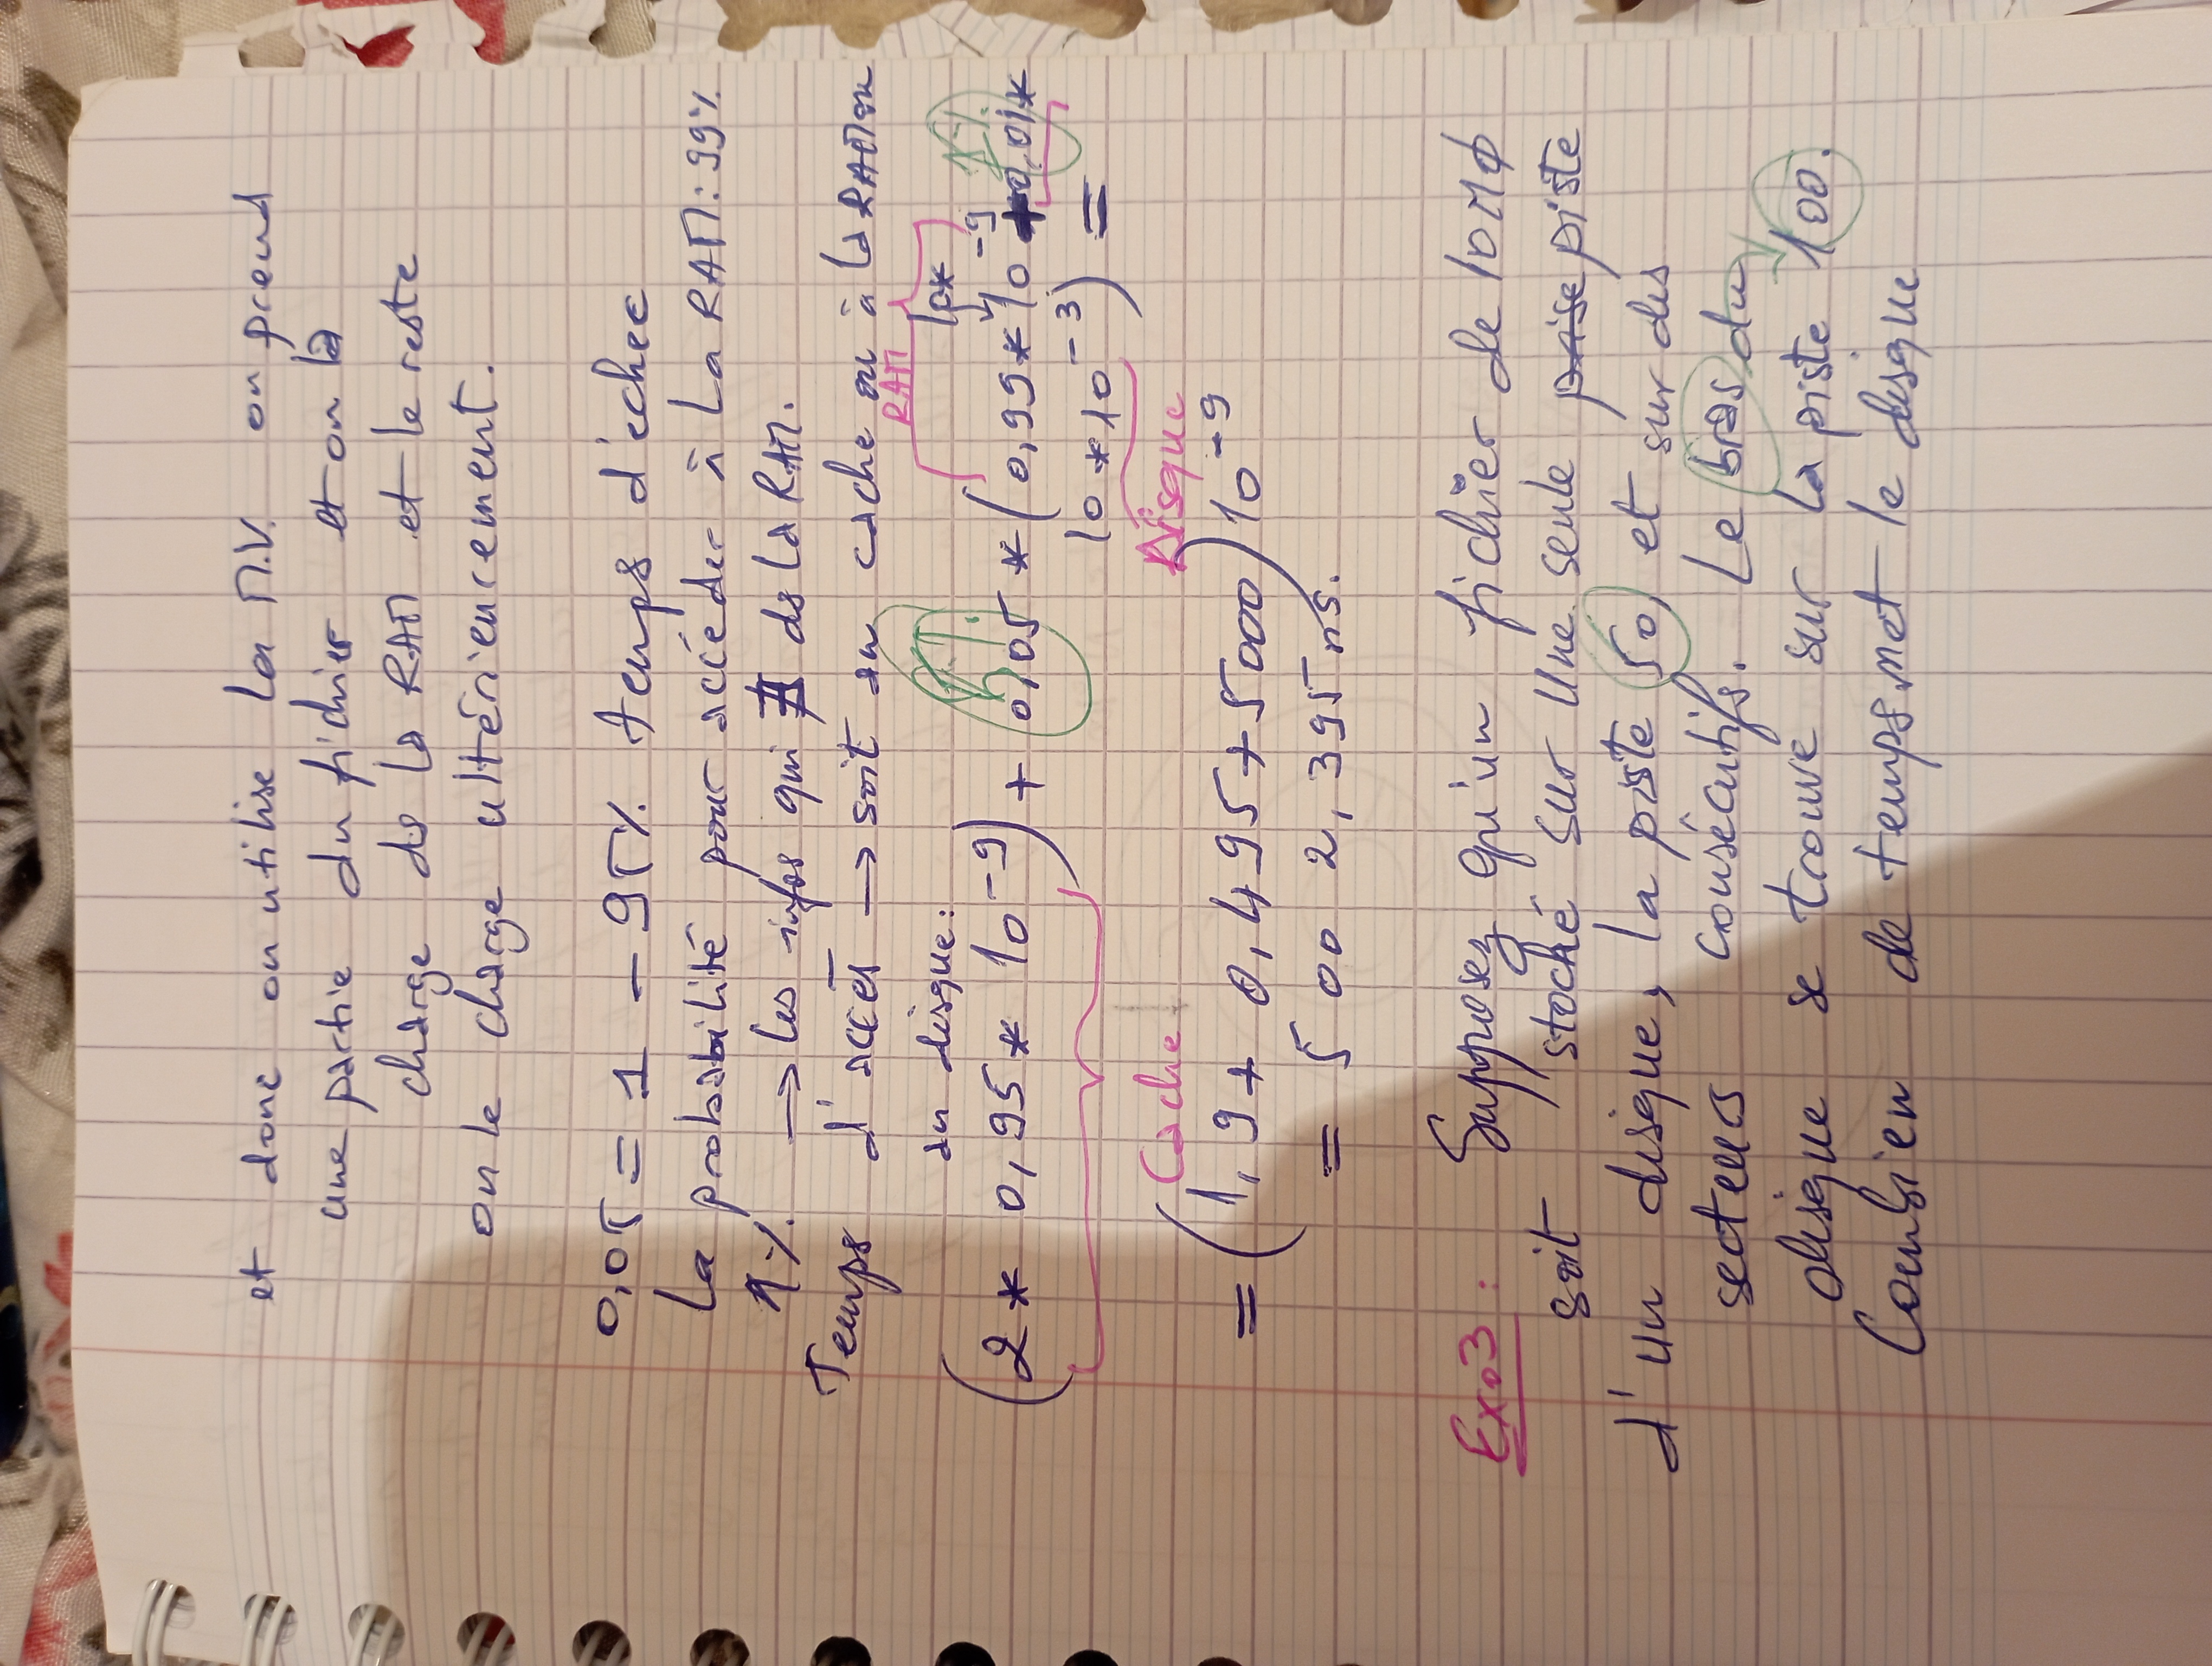 et donc on utilise la M.V. on prend
une partie du fichier et on la
charge ds la RAM et le reste
on le charge ultérieurcement.
0,05 = 1 - 95% temps d'echec
La probabilité pour accéder à La RAM: 99%
1% → les infos qui ∄ ds la RAM.
Temps d'accès → soit au cache ou à la RAM ou
au disque:
RAM
(2 * 0,95 * 10⁻⁹) + 0,05 * (0,99 * 10⁻⁹ + 0,01 *
1%
10 * 10⁻³) =
Cache
Disque
= (1,9 + 0,495 + 5000) 10⁻⁹
= 5 00 2,395 ns.
Exo3:
Supposez qu'un fichier de 10 MO
soit stocké sur une seule piste
d'un disque, la piste 50, et sur des
secteurs consécutifs. Le bras du
disque se trouve sur la piste 100.
Combien de temps met le disque